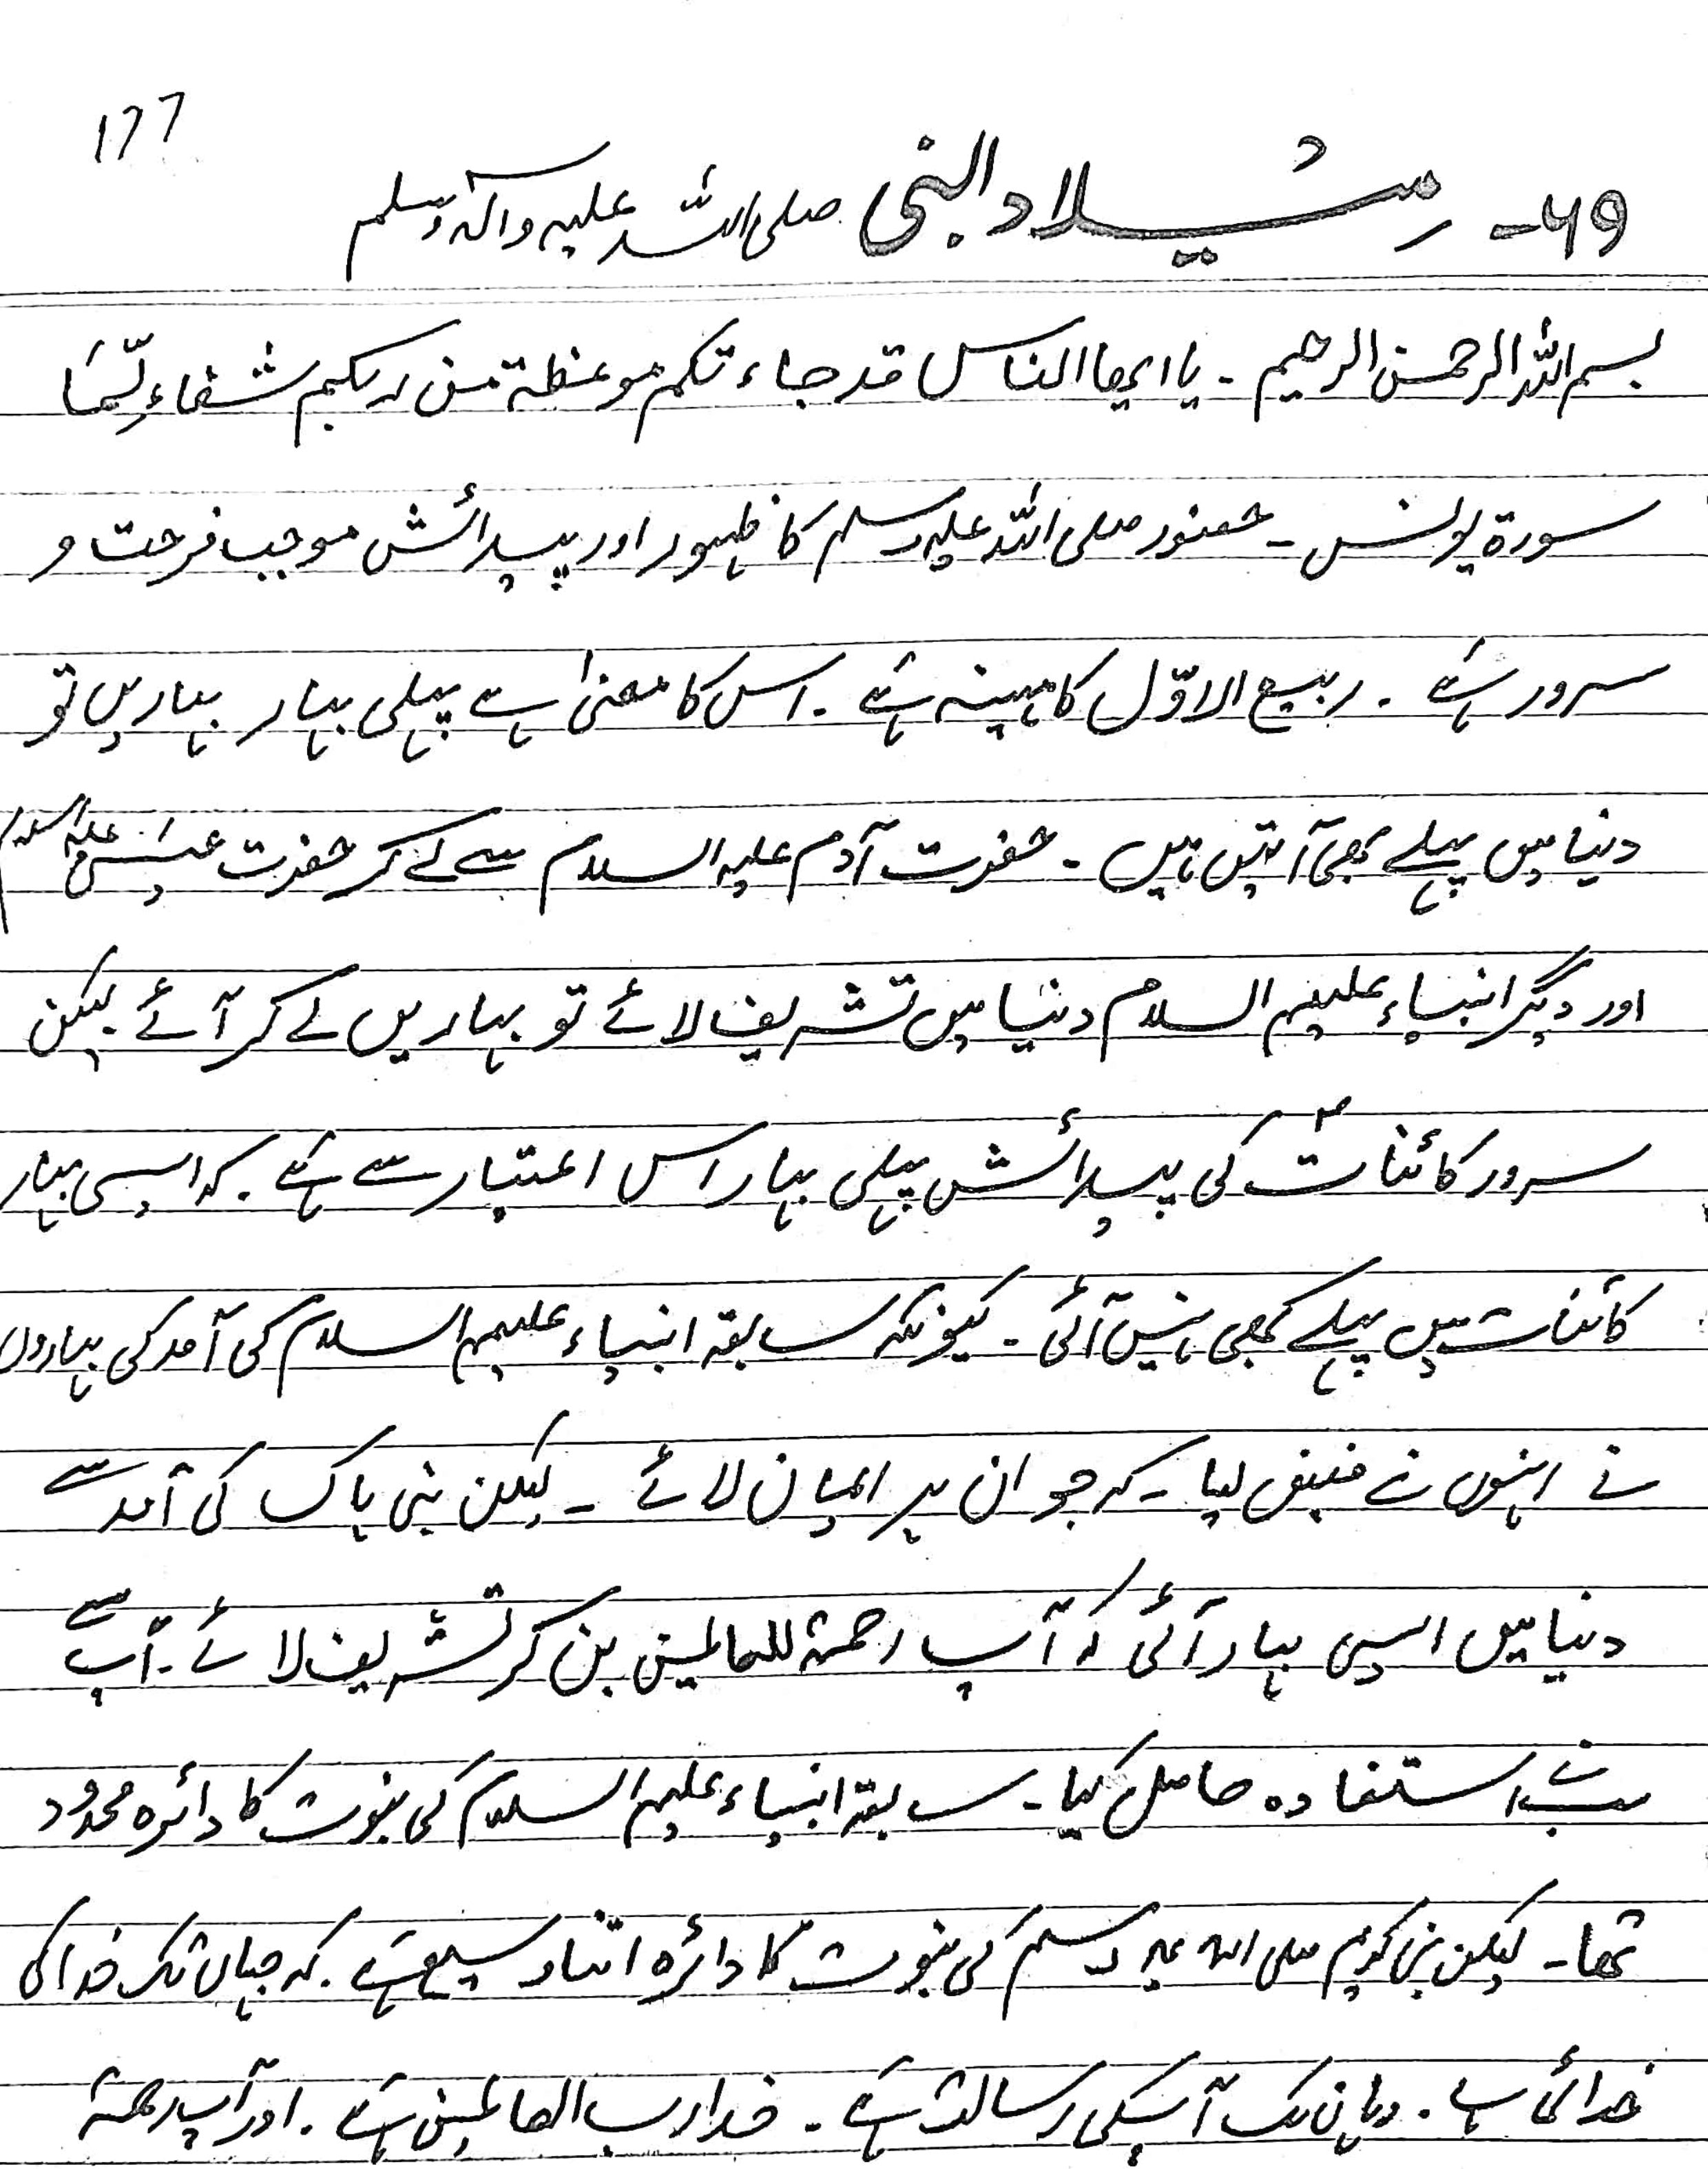 177
69- میلاد النبی صلی اللہ علیہ وآلہ وسلم
بسم اللہ الرحمن الرحیم ۔ یا ایھا الناس قد جاء تکم موعظة من ربکم شفاءِ لِّمَا
سورۃ یونس ۔ حضور صلی اللہ علیہ وسلم کا ظہور اور پیدائش موجب فرحت و
سرور ہے ۔ ربیع الاوّل کا مہینہ ہے ۔ اس کا معنیٰ ہے پہلی بہار بہاریں تو
دنیا میں پہلے بھی آتیں ہیں ۔ حضرت آدم علیہ السلام سے لے کر حضرت عیسیٰ علیہ السلام
اور دیگر انبیاء علیہم السلام دنیا میں تشریف لائے تو بہاریں لے کر آئے لیکن
سرور کائناتؐ کی پیدائش پہلی بہار اس اعتبار سے ہے ۔ کہ ایسی بہار
کائنات میں پہلے کبھی نہیں آئی ۔ کیونکہ سابقہ انبیاء علیہم السلام کی آمد کی بہاروں
نے انہوں نے فیض لیا ۔ کہ جو ان پر ایمان لائے ۔ لیکن نبی پاک کی آمد سے
دنیا میں ایسی بہار آئی کہ آپ رحمۃ للعالمین بن کر تشریف لائے ۔ آپ سے
سب نے استفادہ حاصل کیا ۔ سابقہ انبیاء علیہم السلام کی نبوت کا دائرہ محدود
تھا ۔ لیکن نبی کریم صلی اللہ علیہ وسلم کی نبوت کا دائرہ اتنا وسیع ہے ۔ کہ جہاں تک خدا کی
خدائی ہے ۔ وہاں تک آپکی رسالت ہے ۔ خدا رب العالمین ہے ۔ اور آپ رحمۃ